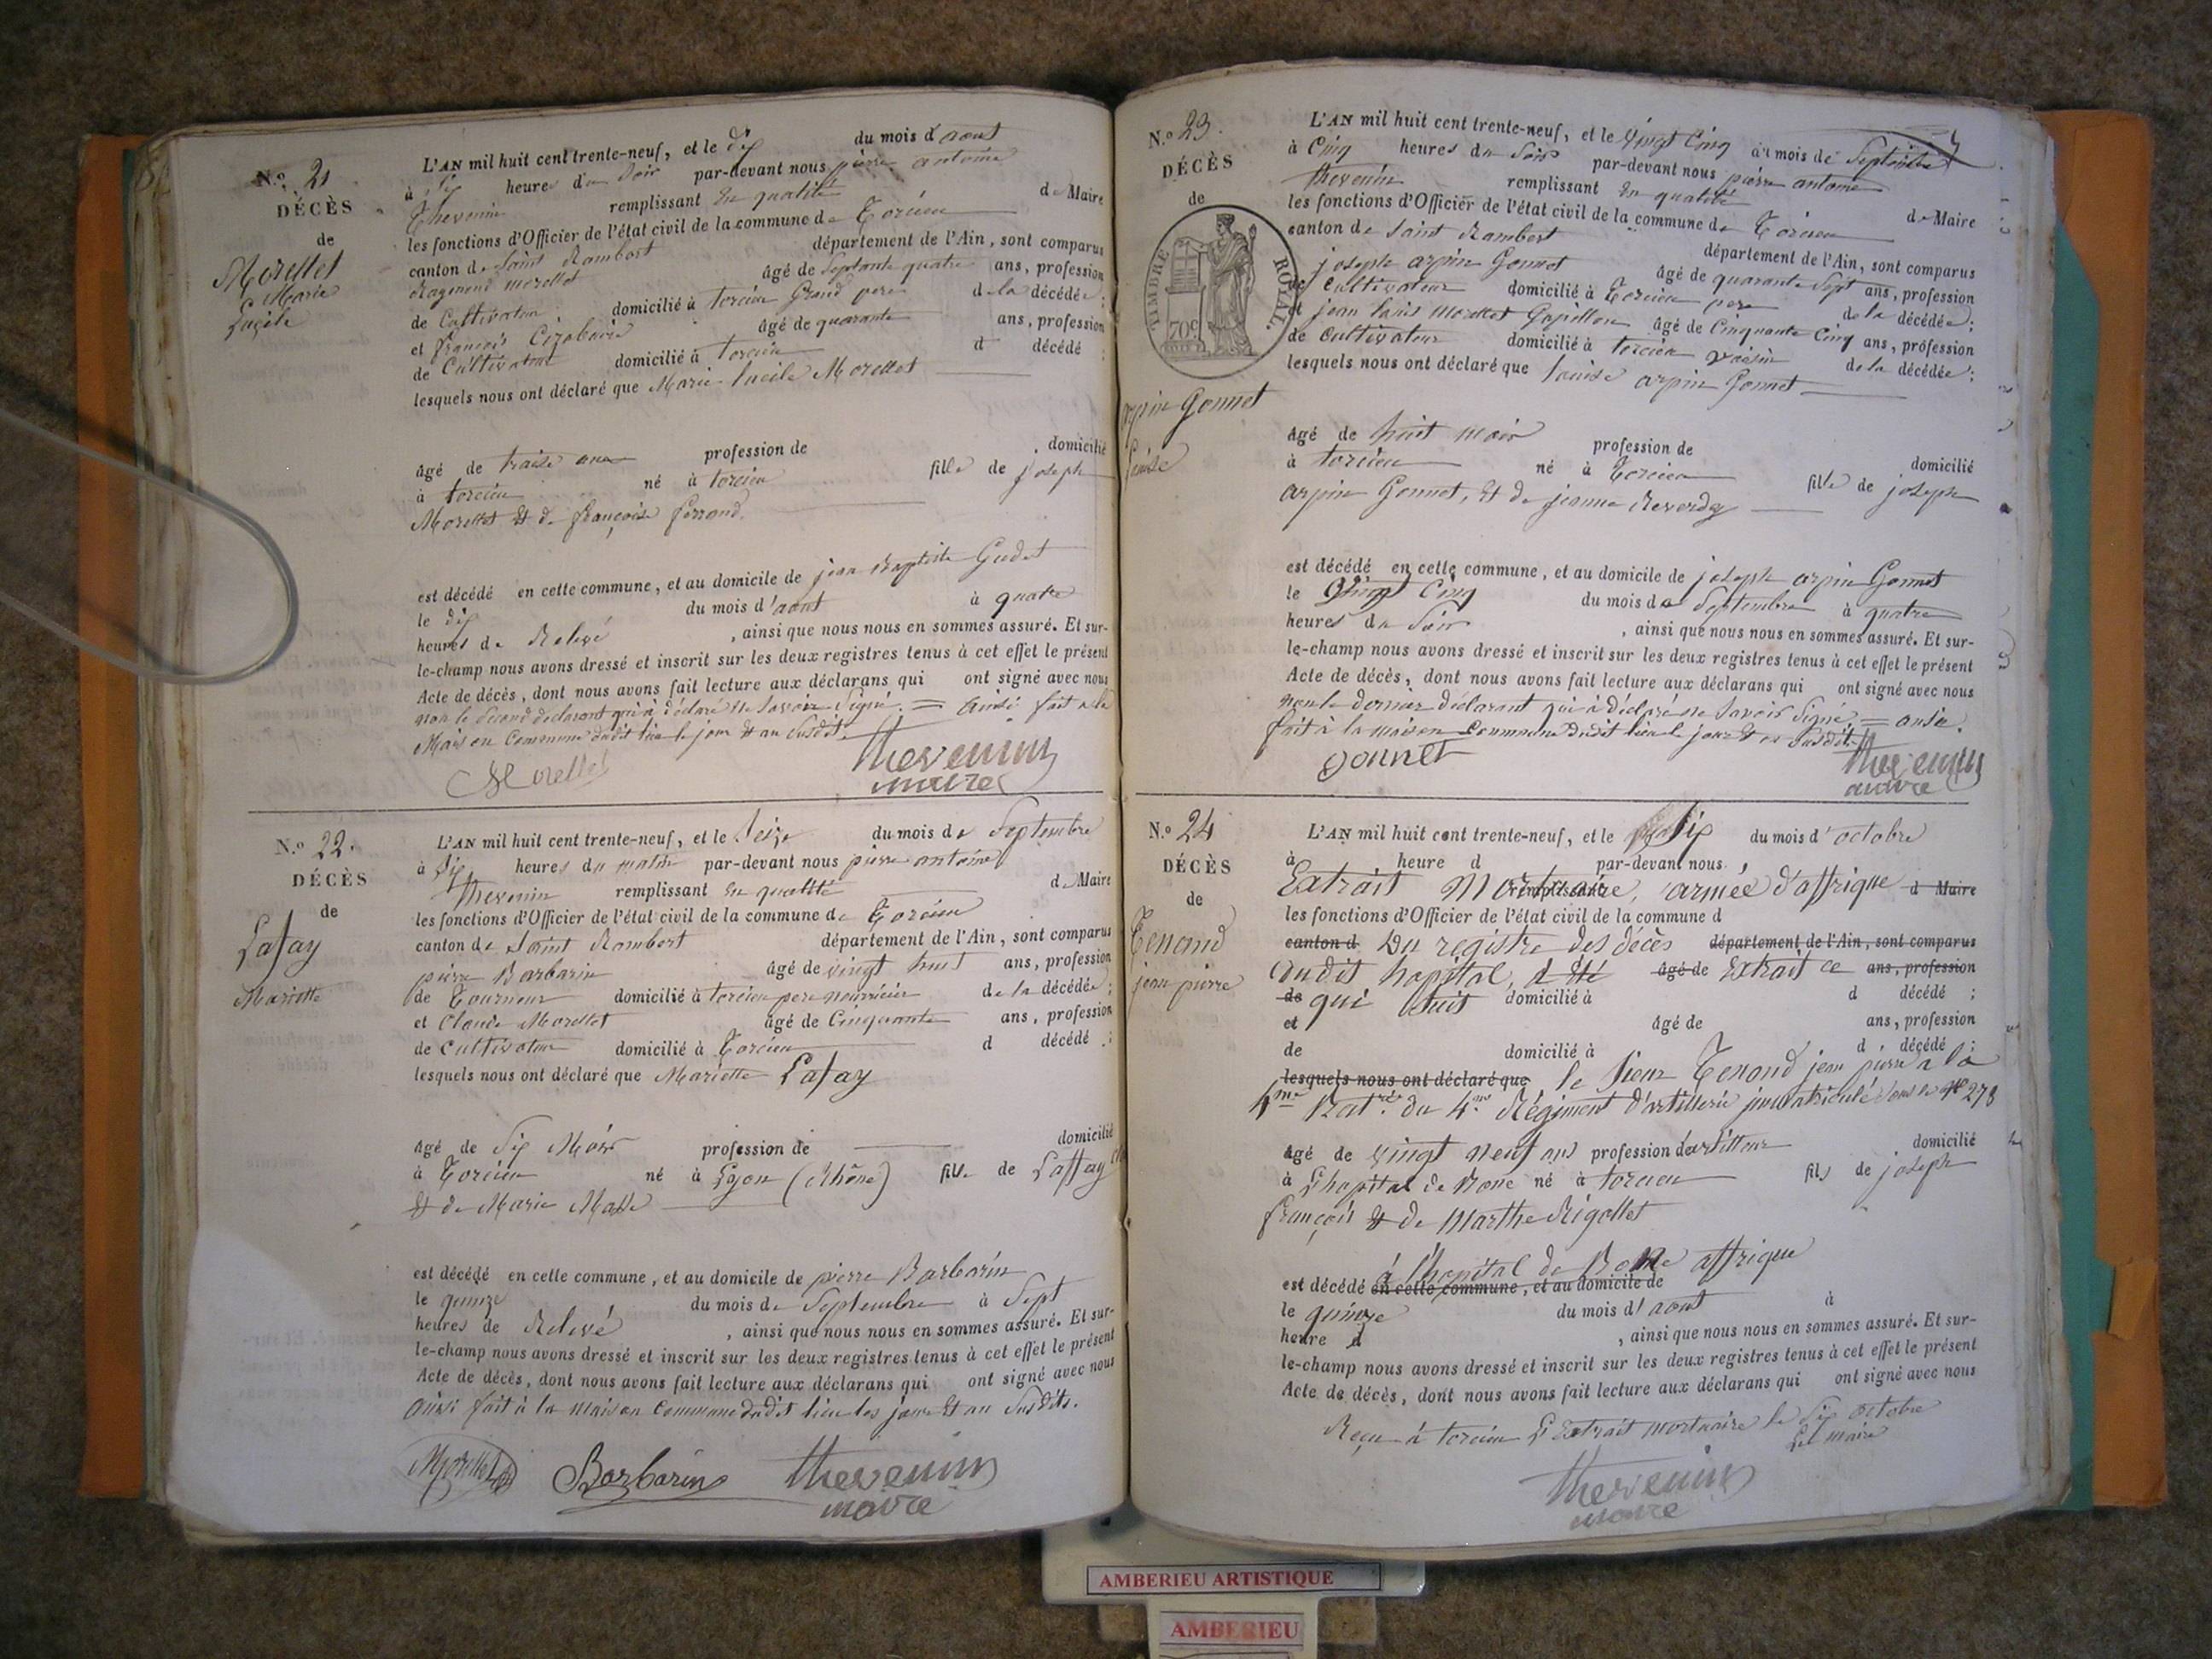 N.o 21
DÉCÈS
de
Morellet
Marie
Lucile
L'AN mil huit cent trente-neuf, et le dix du mois d'aout
à six heures du soir par-devant nous pierre antoine
Thevenin remplissant en qualité de Maire
les fonctions d'Officier de l'état civil de la commune de Torcieu
canton de Saint Rambert département de l'Ain, sont comparus
Raymond morellet âgé de Septante quatre ans, profession
de Cultivateur domicilié à torcieu Grand pere de la décédée ;
et françois âgé de quarante ans, profession
de Cultivateur domicilié à torcieu d décédé ;
lesquels nous ont déclaré que Marie Lucile Morellet
âgé de traise ans profession de domicilié
à torcieu né à torcieu fille de joseph
Morellet et de françoise ferrand.
est décédé en cette commune, et au domicile de jean Baptiste Gudet
le dix du mois d'aout à quatre
heures de Relevé , ainsi que nous nous en sommes assuré. Et sur-
le-champ nous avons dressé et inscrit sur les deux registres tenus à cet effet le présent
Acte de décès, dont nous avons fait lecture aux déclarans qui ont signé avec nous
non le Second déclarant qui à déclaré ne Savoir Signé. = ainsi fait à la
Maison Commune dudit lieu le jour et an Susdit.
Morellet
Thevenin
maire
N.o 22.
DÉCÈS
de
Lafay
Mariette
L'AN mil huit cent trente-neuf, et le Seize du mois de Septembre
à Six heures du matin par-devant nous pierre antoine
Thevenin remplissant en qualité de Maire
les fonctions d'Officier de l'état civil de la commune de Torcieu
canton de Saint Rambert département de l'Ain, sont comparus
pierre Barbarin âgé de vingt huit ans, profession
de Tourneur domicilié à torcieu pere nourricier de la décédée ;
et Claude Morellet âgé de Cinquante ans, profession
de Cultivateur domicilié à Torcieu d décédé ;
lesquels nous ont déclaré que Mariette Lafay
âgé de Six Mois profession de domicilié
à Torcieu né à Lyon (Rhône) fille de Laffay
et de Marie
est décédé en cette commune, et au domicile de pierre Barbarin
le quinze du mois de Septembre à Sept
heures de Relevé , ainsi que nous nous en sommes assuré. Et sur-
le-champ nous avons dressé et inscrit sur les deux registres tenus à cet effet le présent
Acte de décès, dont nous avons fait lecture aux déclarans qui ont signé avec nous
ainsi fait à la maison Commune dudit lieu les jour et an Susdits.
Morellet Barbarin Thevenin
maire
N.o 23.
DÉCÈS
de
TIMBRE ROYAL.
70c
arpin Gonnet
Louise
L'AN mil huit cent trente-neuf, et le Vingt Cinq du mois de Septembre
à Cinq heures du Soir par-devant nous pierre antoine
Thevenin remplissant en qualité de Maire
les fonctions d'Officier de l'état civil de la commune de Torcieu
canton de Saint Rambert département de l'Ain, sont comparus
joseph arpin Gonnet âgé de quarante Sept ans, profession
de Cultivateur domicilié à Torcieu pere de la décédée ;
et jean louis morellet Gapillon âgé de Cinquante Cinq ans, profession
de Cultivateur domicilié à torcieu voisin de la décédée ;
lesquels nous ont déclaré que louise arpin Gonnet
âgé de huit mois profession de domicilié
à torcieu né à Torcieu fille de joseph
arpin Gonnet, et de jeanne Reverdy
est décédé en cette commune, et au domicile de joseph arpin Gonnet
le Vingt Cinq du mois de Septembre à quatre
heures du Soir , ainsi que nous nous en sommes assuré. Et sur-
le-champ nous avons dressé et inscrit sur les deux registres tenus à cet effet le présent
Acte de décès, dont nous avons fait lecture aux déclarans qui ont signé avec nous
non le dernier déclarant qui à déclaré ne Savoir Signé = ansie
fait à la maison Commune Dudit lieu le jour et an Susdit.
Gonnet
Thevenin
maire
N.o 24
DÉCÈS
de
Tenand
jean pierre
L'AN mil huit cent trente-neuf, et le Six du mois d'octobre
à heure d par-devant nous
Extrait Mortuaire, armée d'affrique d Maire
remplissant
les fonctions d'Officier de l'état civil de la commune d
canton d Du registre des décès département de l'Ain, sont comparus
dudit hopital, a été âgé de Extrait ce ans, profession
de qui Suit domicilié à d décédé ;
et âgé de ans, profession
de domicilié à d décédé ;
lesquels nous ont déclaré que le Sieur Tenand jean pierre à la
4me Bat.re du 4.me Régiment d'artillerie immatriculé sous le No 278
âgé de vingt neuf ans profession d'artilleur domicilié
à L'hopital de Bone né à torcieu fils de joseph
françois et de Marthe Rigollet
à l'hopital de Bone affrique
est décédé en cette commune, et au domicile de
le quinze du mois d'aout à
heure d , ainsi que nous nous en sommes assuré. Et sur-
le-champ nous avons dressé et inscrit sur les deux registres tenus à cet effet le présent
Acte de décès, dont nous avons fait lecture aux déclarans qui ont signé avec nous
Reçu à torcieu L'Extrait mortuaire le Six octobre
Le maire
Thevenin
maire
AMBERIEU ARTISTIQUE
AMBERIEU